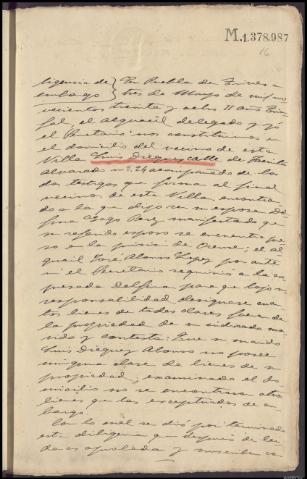 M.1.378.987
16
ligencia de En Puebla de Trives a
embargo tres de Mayo de mil no
vecientos treinta y ocho II año Triun
fal, el alguacil delegado y yo
el Secretario nos constituimos en
el domicilio del vecino de esta
Villa Luis Dieguez calle de
Alvarado nº 26 acompañado de los
dos testigos que firma al final
vecinos de esta Villa, encontran
do a la que dijo ser su esposa Del
fina Perez manifestando que
su referido esposo se encuentra pre
so en la prision de Orense; el al
guacil José Alonso Lopez por ante
mi el Secretario requirió a la ex
presada Delfina para que bajo su
responsabilidad designase cuan
tos bienes de todas clases fueran de
la propiedad de su indicado ma
rido y contesta: Que su marido
Luis Dieguez Alonso no posee
ninguna clase de bienes de su
propiedad; examinado el do
micilio no se encontraron otros
bienes que los exceptuados de em
bargo.
Con lo cual se dió por terminada
esta diligencia que despues de lei
da es aprobada y suscriben su